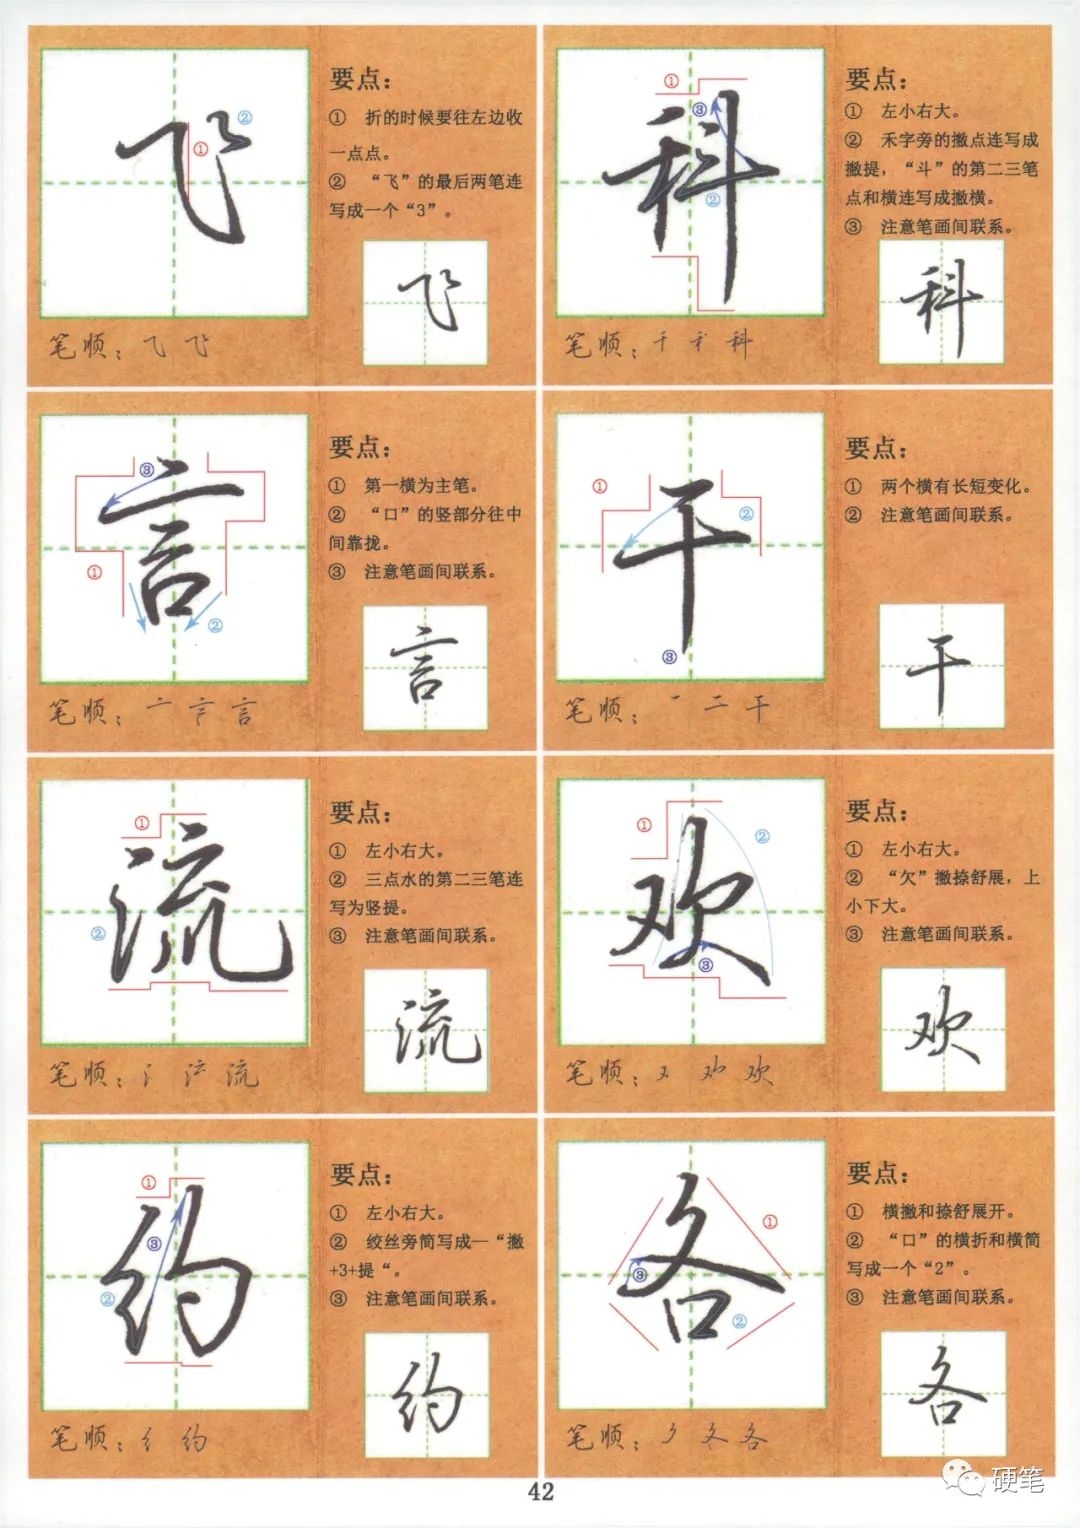 飞
①
②
要点：
① 折的时候要往左边收
一点点。
② “飞”的最后两笔连
写成一个“3”。
飞
笔顺：乁 飞
科
①
③
②
要点：
① 左小右大。
② 禾字旁的撇点连写成
撇提，“斗”的第二三笔
点和横连写成撇横。
③ 注意笔画间联系。
科
笔顺：千 禾 科
言
③
①
②
要点：
① 第一横为主笔。
② “口”的竖部分往中
间靠拢。
③ 注意笔画间联系。
言
笔顺：亠 言
干
①
②
③
要点：
① 两个横有长短变化。
② 注意笔画间联系。
干
笔顺：一 二 干
流
①
②
要点：
① 左小右大。
② 三点水的第二三笔连
写为竖提。
③ 注意笔画间联系。
流
笔顺：氵 流
欢
①
②
③
要点：
① 左小右大。
② “欠”撇捺舒展，上
小下大。
③ 注意笔画间联系。
欢
笔顺：又 欢 欢
约
①
③
②
要点：
① 左小右大。
② 绞丝旁简写成一“撇
+3+提“。
③ 注意笔画间联系。
约
笔顺：纟 约
各
①
③
②
要点：
① 横撇和捺舒展开。
② “口”的横折和横简
写成一个“2”。
③ 注意笔画间联系。
各
笔顺：夕 夂 各
42
硬笔